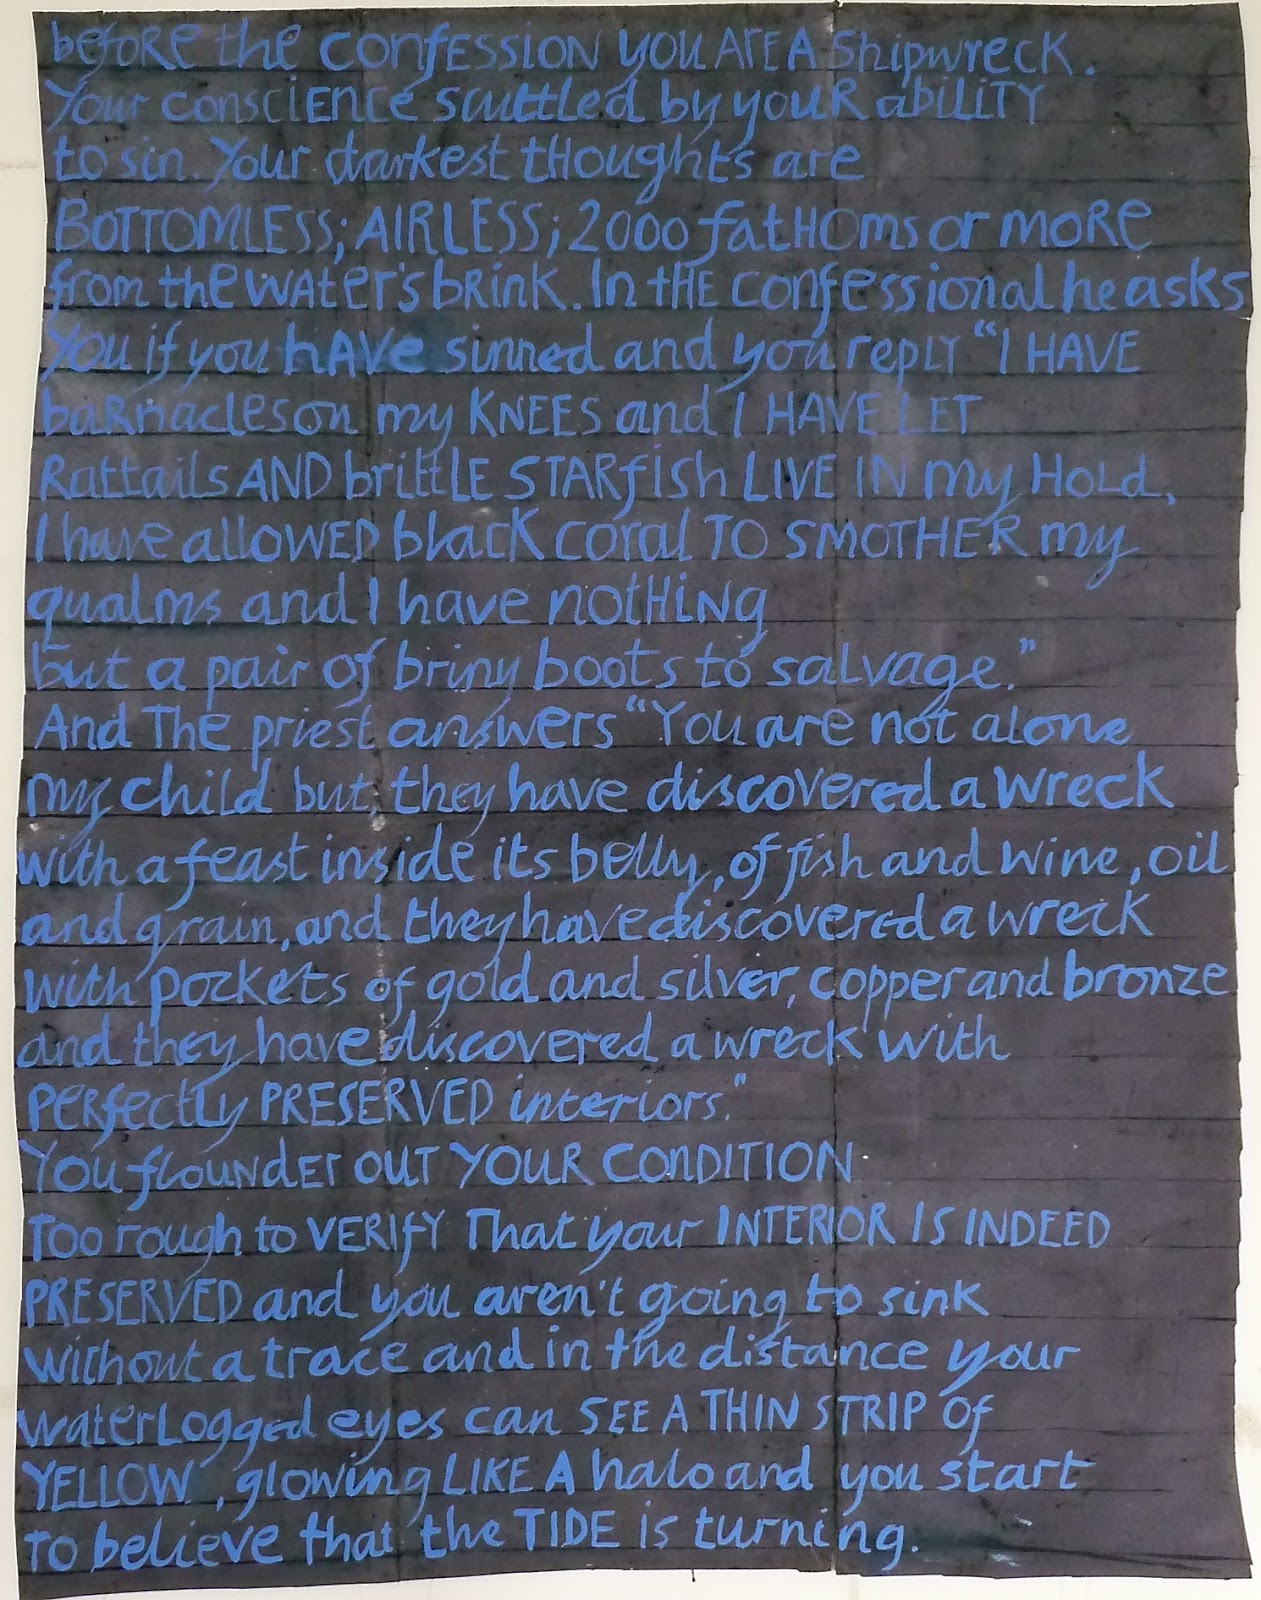 before the confESSION you ArE A Shipwreck.
Your conscIENce scuttled by youR abILITY
to sin. Your darkest tHoughts are
BOTTOMLESS; AIRLESS; 2000 fatHOms or moRe
from the WAter's bRink. In tHE confessional he asks
You if you hAVe sinned and you repLY "I HAVE
baRnacles on my KNEES and I HAVE LET
Rattails AND brittLE STARfish LIVE IN my HOLd,
I have aLLOWED black coral TO SMOTHER my
qualms and I have notHING
but a pair of briny boots to salvage."
And The priest answers "You are not alone
my child but, they have discovered a wreck
with a feast inside its belly, of fish and wine, oil
and grain, and they have discovered a wreck
with pockets of gold and silver, copper and bronze
and they have discovered a wreck with
PERfectLy PRESERVED interiors."
You fLOUNdEr OUT YOUR CONDITION
TOO rough to VERIfY That your INTERIOR IS INDEED
PRESERVED and you aren't going to sink
without a trace and in the distance your
waterLogged eyes can SEE A THIN STRIP Of
YELLOW, glowing LIKE A halo and you start
TO believe that the TIDE is turning.